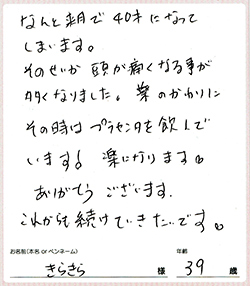 なんと来月で40才になって
しまいます。
そのせいか頭が痛くなる事が
多くなりました。薬のかわりに
その時はプラセンタを飲んで
います! 楽になります。
ありがとうございます。
これからも続けていきたいです。
お名前(本名 or ペンネーム) 年齢
きらきら 様 39 歳